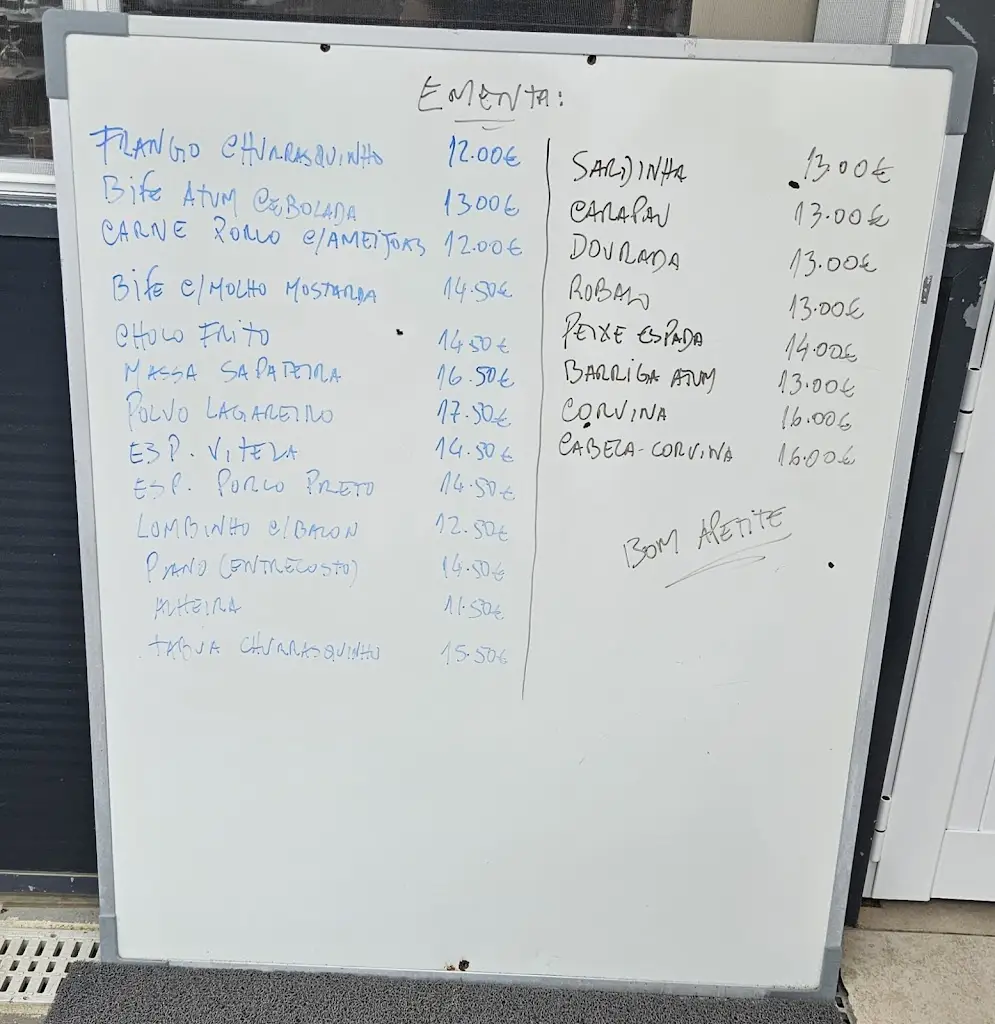 EMENTA:
FRANGO CHURRASQUINHO 12.00€
BIFE ATUM CEBOLADA 1300€
CARNE PORCO C/AMEIJOAS 12.00€
BIFE C/MOLHO MOSTARDA 14.50€
CHOCO FRITO 14.50€
MASSA SAPATEIRA 16.50€
POLVO LAGAREIRO 17.50€
ESP. VITELA 14.50€
ESP. PORCO PRETO 14.50€
LOMBINHO C/BACON 12.50€
PIANO (ENTRECOSTO) 14.50€
ALHEIRA 11.50€
TABUA CHURRASQUINHO 15.50€
SARDINHA 13.00€
CARAPAU 13.00€
DOURADA 13.00€
ROBALO 13.00€
PEIXE ESPADA 14.00€
BARRIGA ATUM 13.00€
CORVINA 16.00€
CABEÇA-CORVINA 16.00€
BOM APETITE